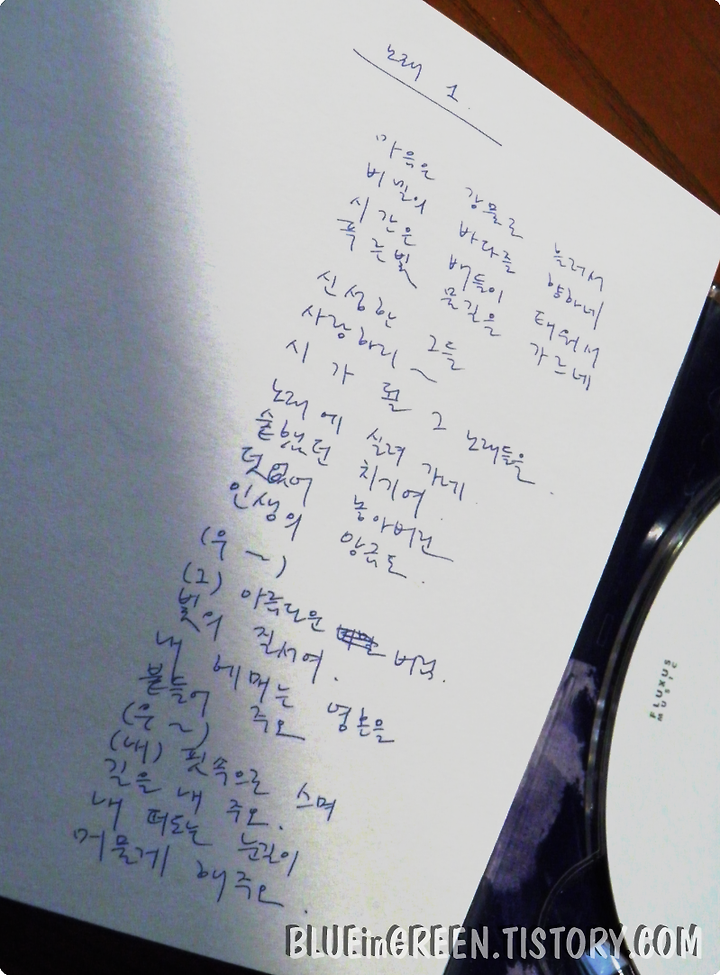 노래 1.
마음은 강물로 흘러서
비밀의 바다를 향하네
시간은 배들이 태워서
푸른빛 물길을 가르네
신성한 그들
사랑하리 ~
시가 될 그 노래들을
노래에 실려 가네
술했던 치기여.
덧없어 놓아버린
인생의 앙금도.
(우 ~)
(그) 아름다운 비밀.
빛의 질서여.
내 헤매는 영혼을
붙들어 주오
(우 ~)
(내) 핏속으로 스며
길을 내 주오.
내 떠도는 눈길이
머물게 해주오.
FLUXUS
MUSIC
BLUEinGREEN.TISTORY.COM